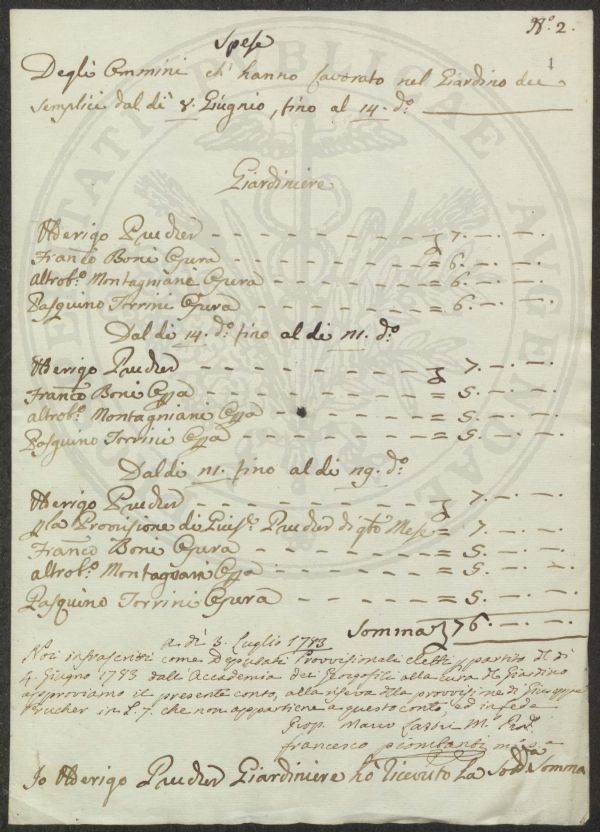 N.º 2.
1
Spese
Degli Ommini ch' hanno lavorato nel Giardino dei
Semplici dal dì 8. Giugnio, fino al 14. dº
Giardiniere
Uberigo Prucher - - - - - - - - - - - - £ 7. — · —
Franco Boni Opera - - - - - - - - - = 6. — · —
altrobº. Montagniani Opera - - - - - - = 6. — · —
Pasquino Torrini Opera - - - - - - - = 6. — · —
Dal di 14. dº. fino al di 21. dº
Uberigo Prucher - - - - - - - - - £ 7. — · —
Franco Boni Opa - - - - - - - - = 5. — · —
altrobº. Montagniani Opa - - - - - = 5. — · —
Pasquino Torrini Opa - - - - - - - = 5. — · —
Dal di 21. fino al di 29. dº
Uberigo Prucher - - - - - - - - £ 7. — · —
p la Provisione di Giusep. Prucher di qto Mese = 7. — · —
Franco Boni Opera - - - - - - - = 5. — · —
altrobº. Montagniani Opa - - - - - = 5. — · —
Pasquino Torrini Opera - - - - - - = 5. — · —
Somma £ 76. — · —
a dì 3. Luglio 1783
Noi infrascritti come Deputati Provvisionali eletti p partito del dì
4. Giugno 1783 dall' Accademia dei Georgofili alla cura del Giardino
approviamo il presente conto, alla riserva della provvisione di Giuseppe
Prucher in L. 7. che non appartiene a questo conto, ed in fede
Prop. Marco Lastri M. Pr.
Francesco
Io Uberigo Prucher Giardiniere ho ricevuto la Sodª Somma
SOCIETATIS PUBLICAE AUGENDAE